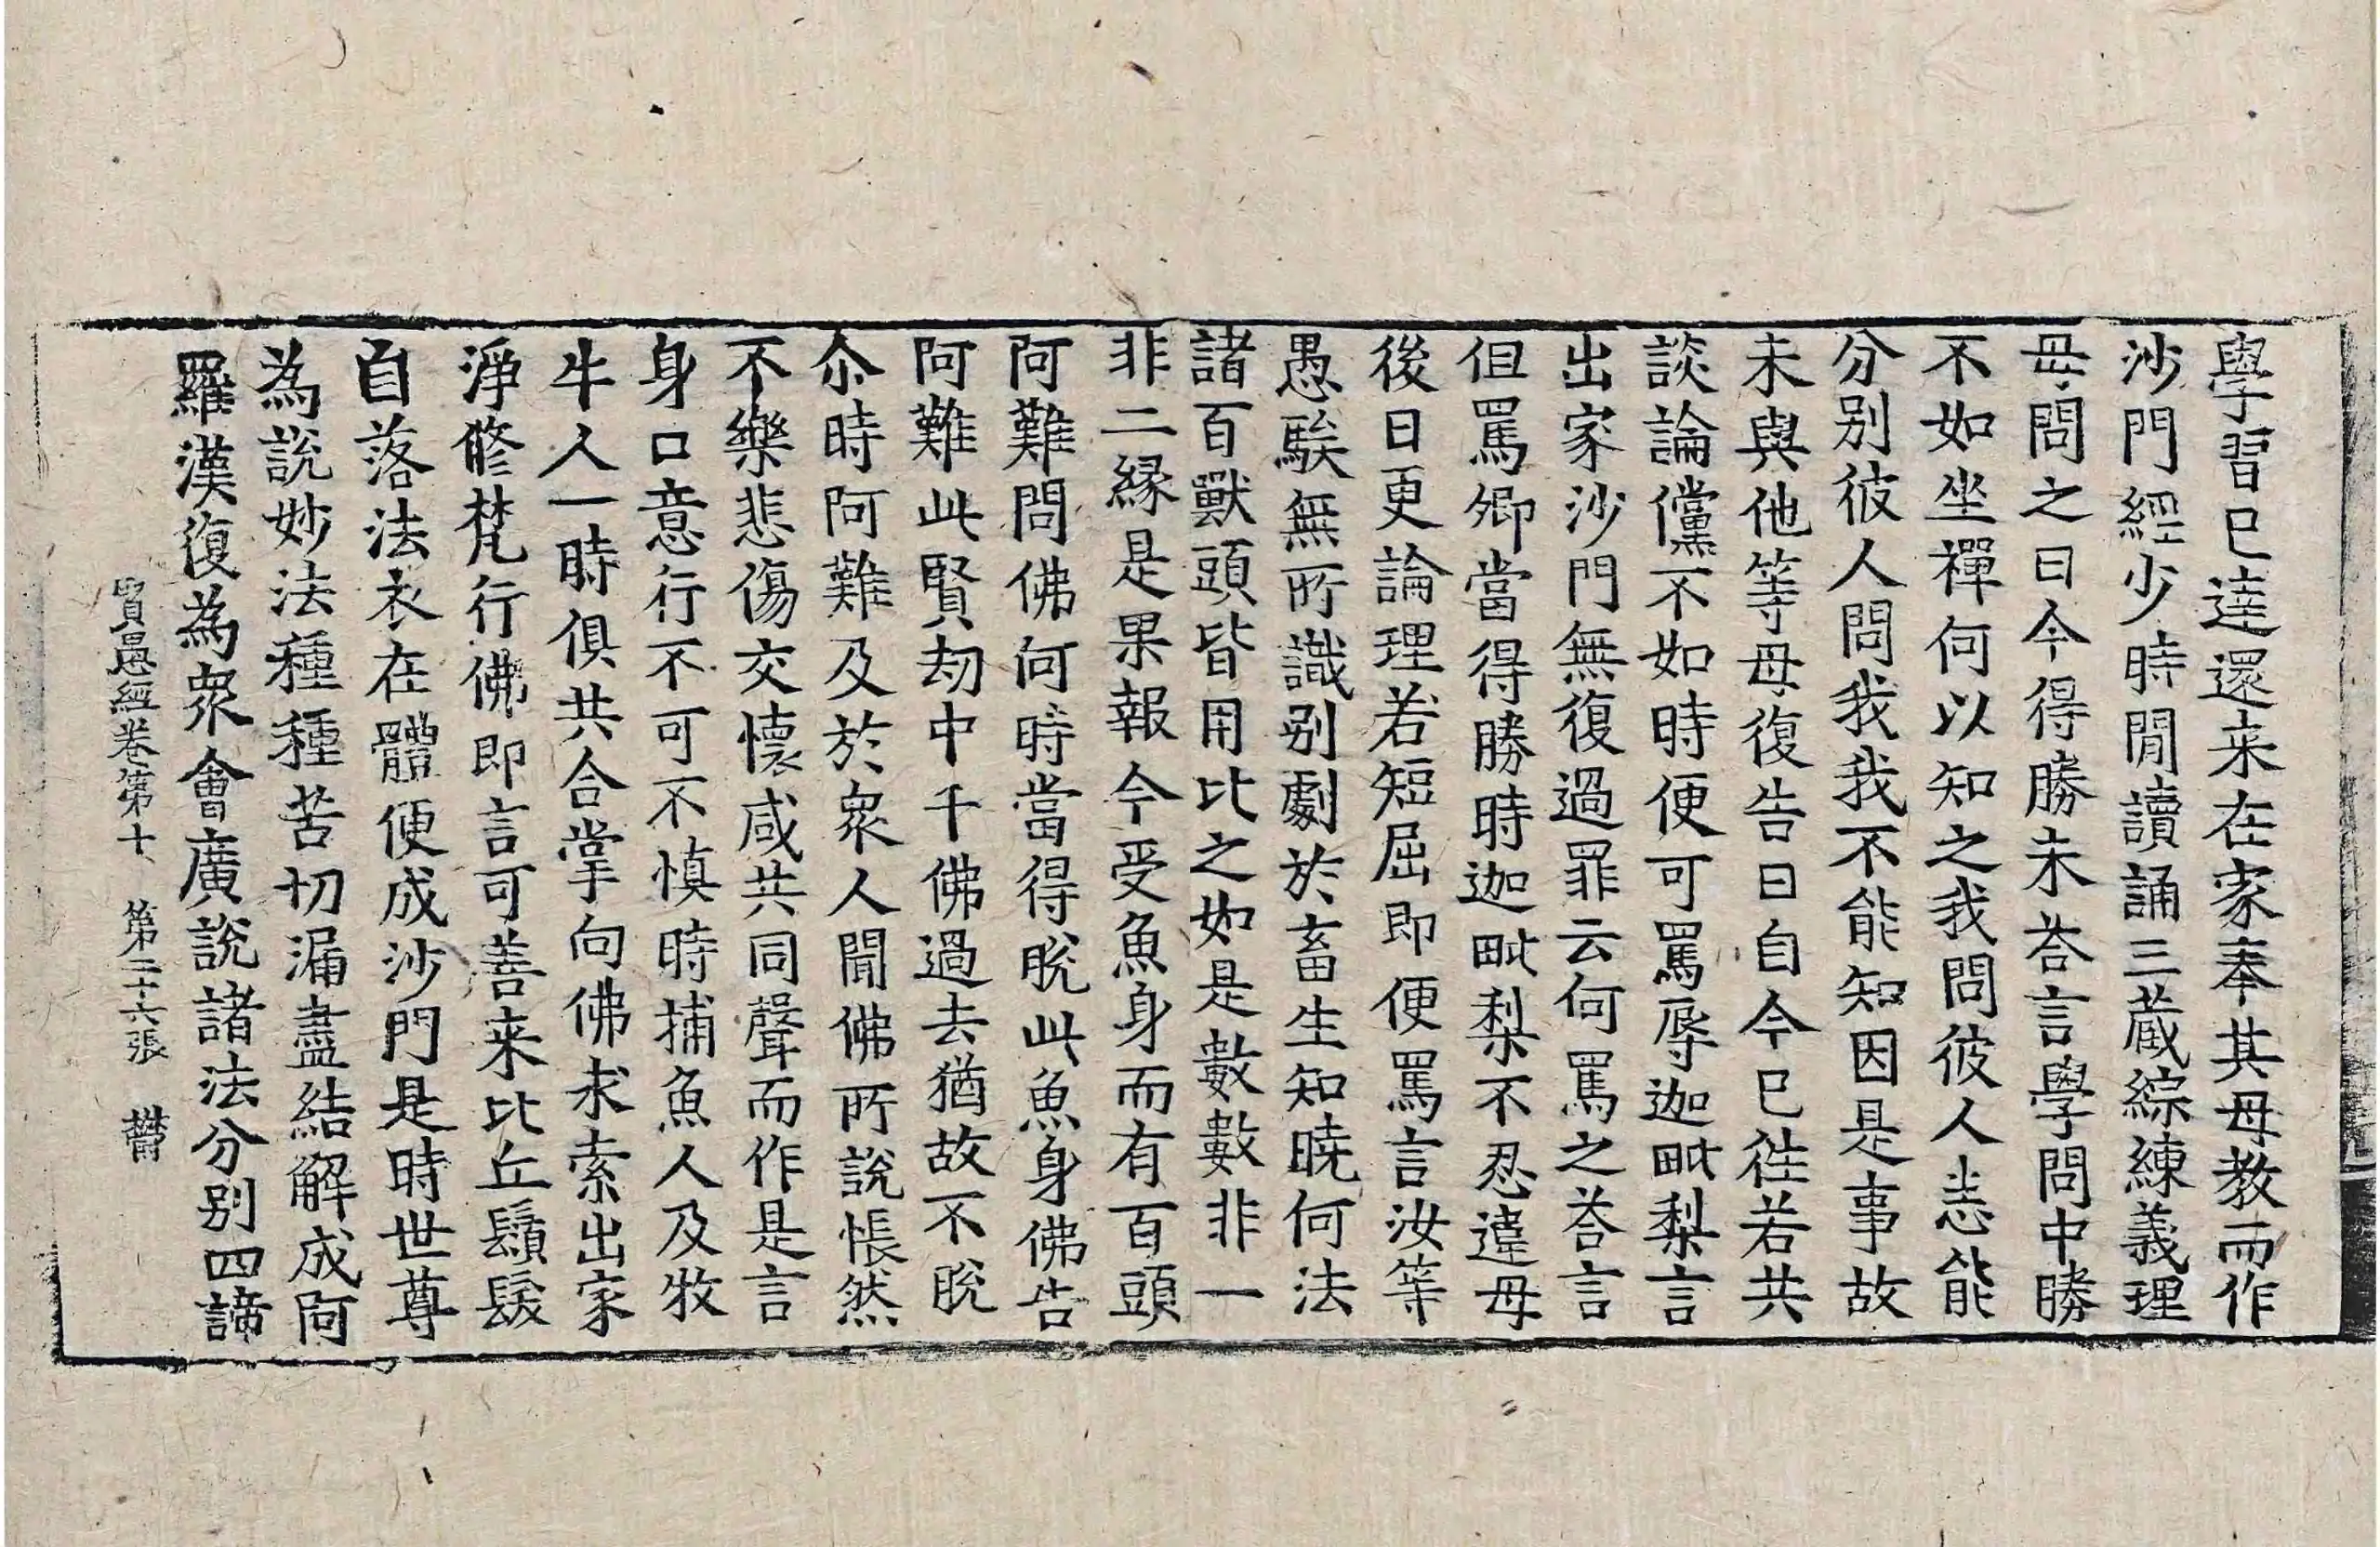 學習已達還来在家奉其母教而作
沙門經少時閒讀誦三藏綜練義理
母問之曰今得勝未荅言學問中勝
不如坐禪何以知之我問彼人悉能
分別彼人問我我不能知因是事故
未與他等母復告曰自今已往若共
談論儻不如時便可罵辱迦毗梨言
出家沙門無復過罪云何罵之荅言
但罵卿當得勝時迦毗梨不忍違母
後日更論理若短屈即便罵言汝等
愚騃無所識別劇於畜生知曉何法
諸百獸頭皆用比之如是數數非一
非二緣是果報今受魚身而有百頭
阿難問佛何時當得脫此魚身佛告
阿難此賢劫中千佛過去猶故不脫
尒時阿難及於衆人聞佛所說悵然
不樂悲傷交懷咸共同聲而作是言
身口意行不可不慎時捕魚人及牧
牛人一時俱共合掌向佛求索出家
淨修梵行佛即言可善来比丘鬚髮
自落法衣在體便成沙門是時世尊
為說妙法種種苦切漏盡結解成阿
羅漢復為衆會廣說諸法分別四諦
賢愚經卷第十 第二十六張 欝